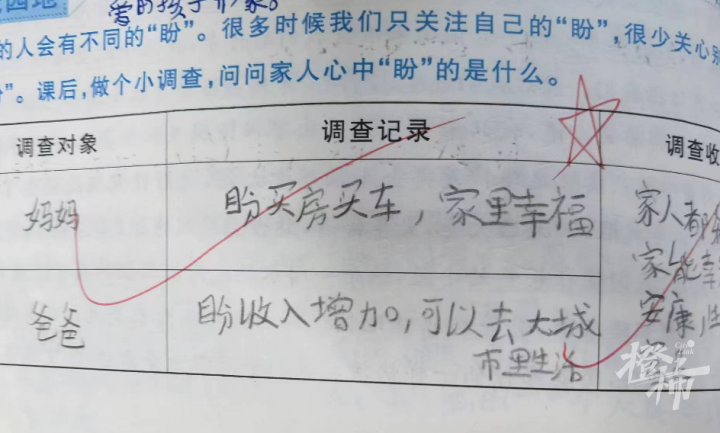 爱的孩子
的人会有不同的“盼”。很多时候我们只关注自己的“盼”,很少关心
”。课后,做个小调查,问问家人心中“盼”的是什么。
调查对象 调查记录 调查收
妈妈 盼买房买车,家里幸福
爸爸 盼收入增加,可以去大城
市里生活
家人都
家能幸
安康,生
橙柿